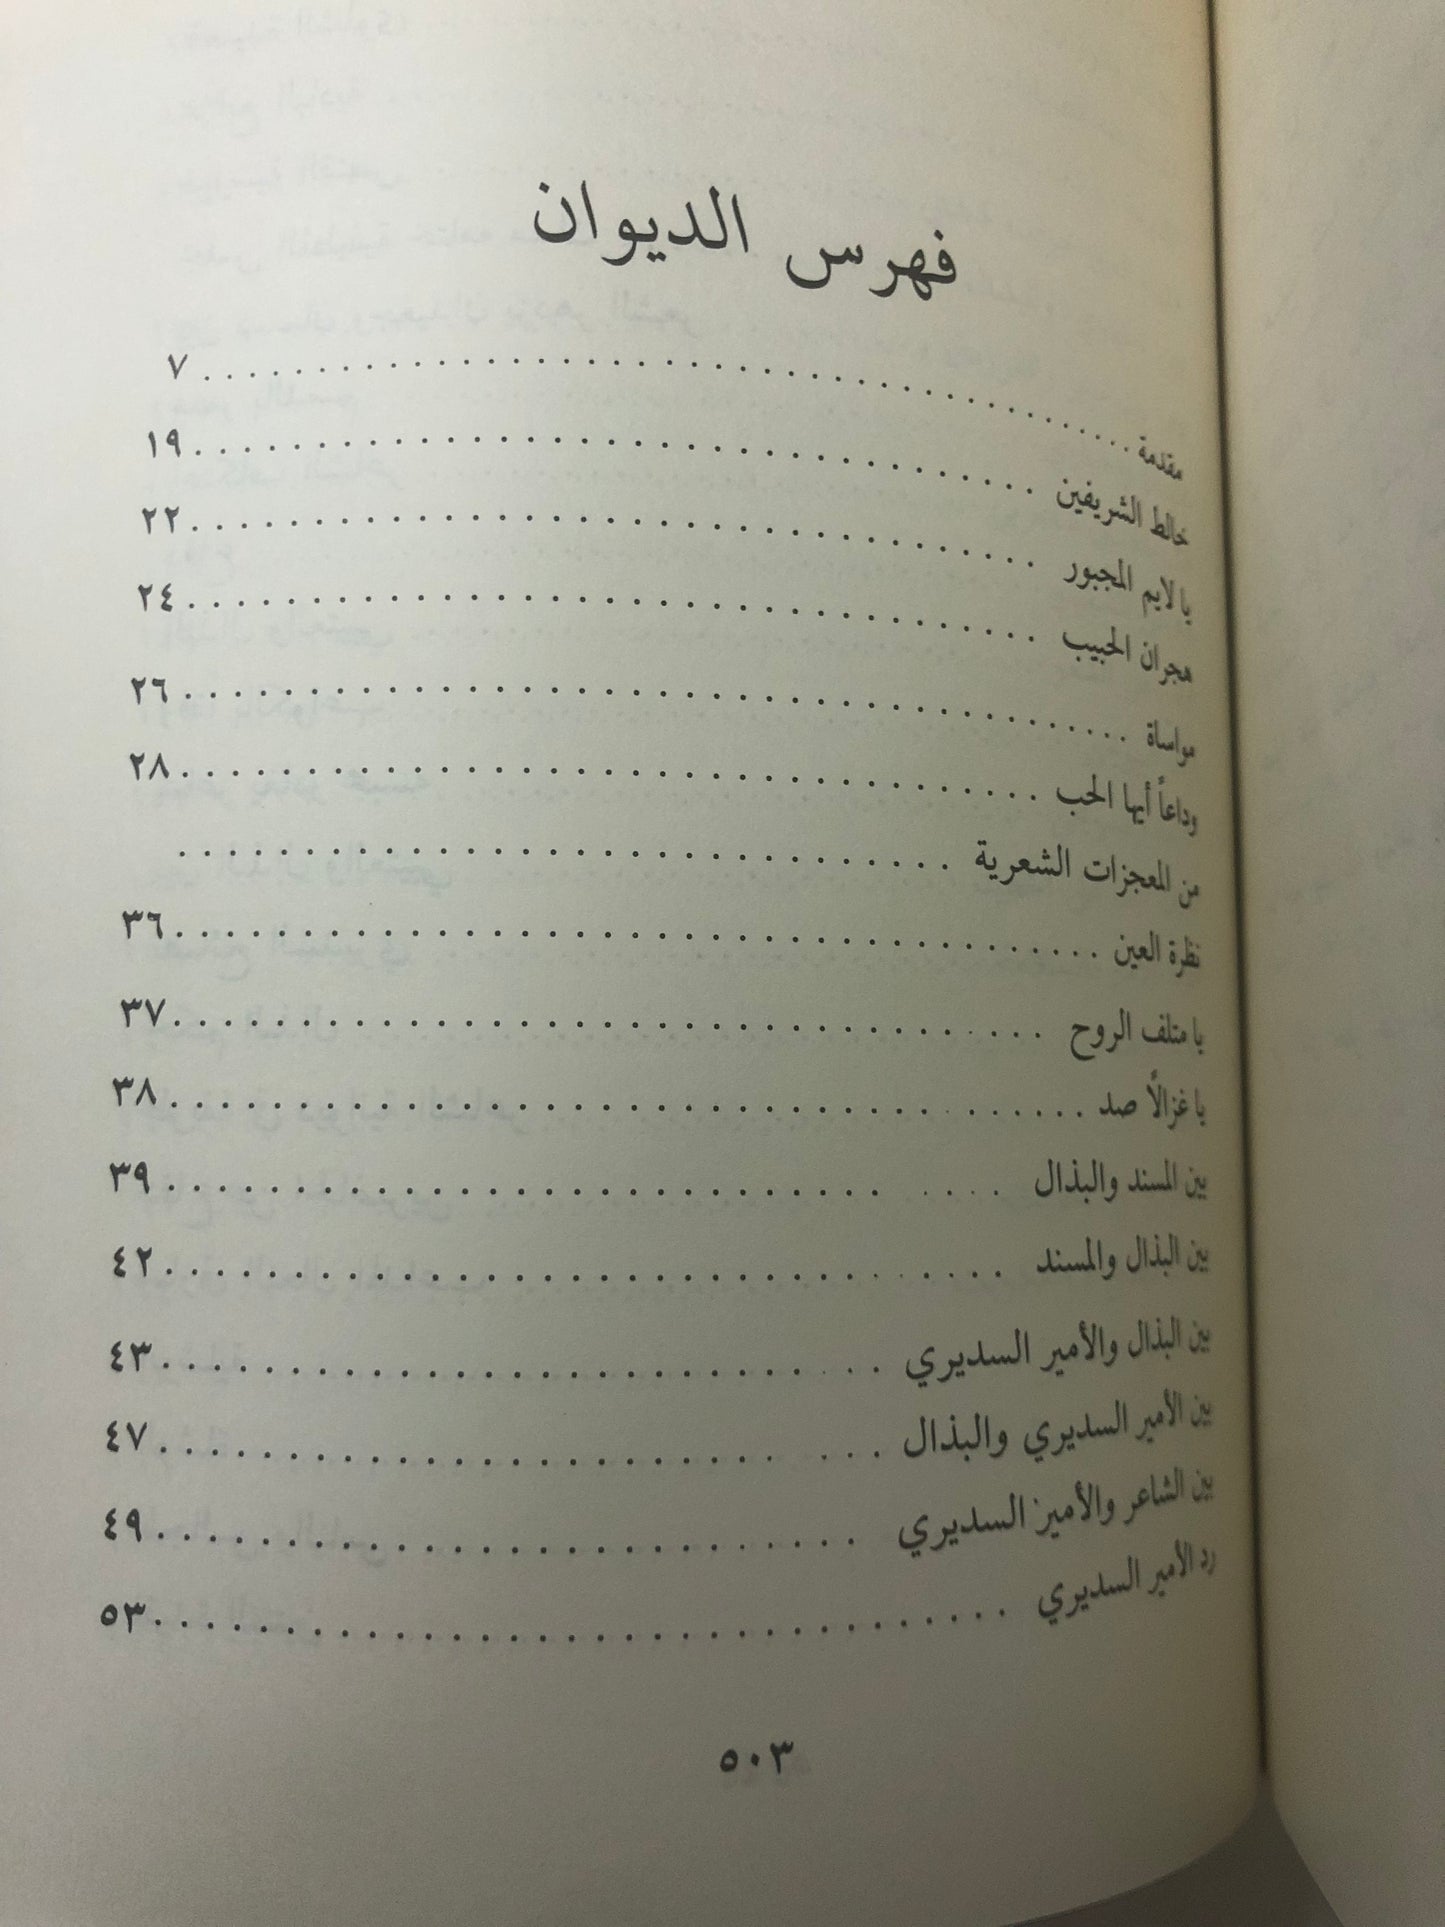 فهرس الديوان
مقدمة ........................................ ٧
خالط الشريفين ........................................ ١٩
يا لايم المجبور ........................................ ٢٢
هجران الحبيب ........................................ ٢٤
مواساة ........................................ ٢٦
وداعاً أيها الحب ........................................ ٢٨
من المعجزات الشعرية ........................................
نظرة العين ........................................ ٣٦
يا متلف الروح ........................................ ٣٧
يا غزالاً صد ........................................ ٣٨
بين المسند والبذال ........................................ ٣٩
بين البذال والمسند ........................................ ٤٢
بين البذال والأمير السديري ........................................ ٤٣
بين الأمير السديري والبذال ........................................ ٤٧
بين الشاعر والأميز السديري ........................................ ٤٩
رد الأمير السديري ........................................ ٥٣
٥٠٣